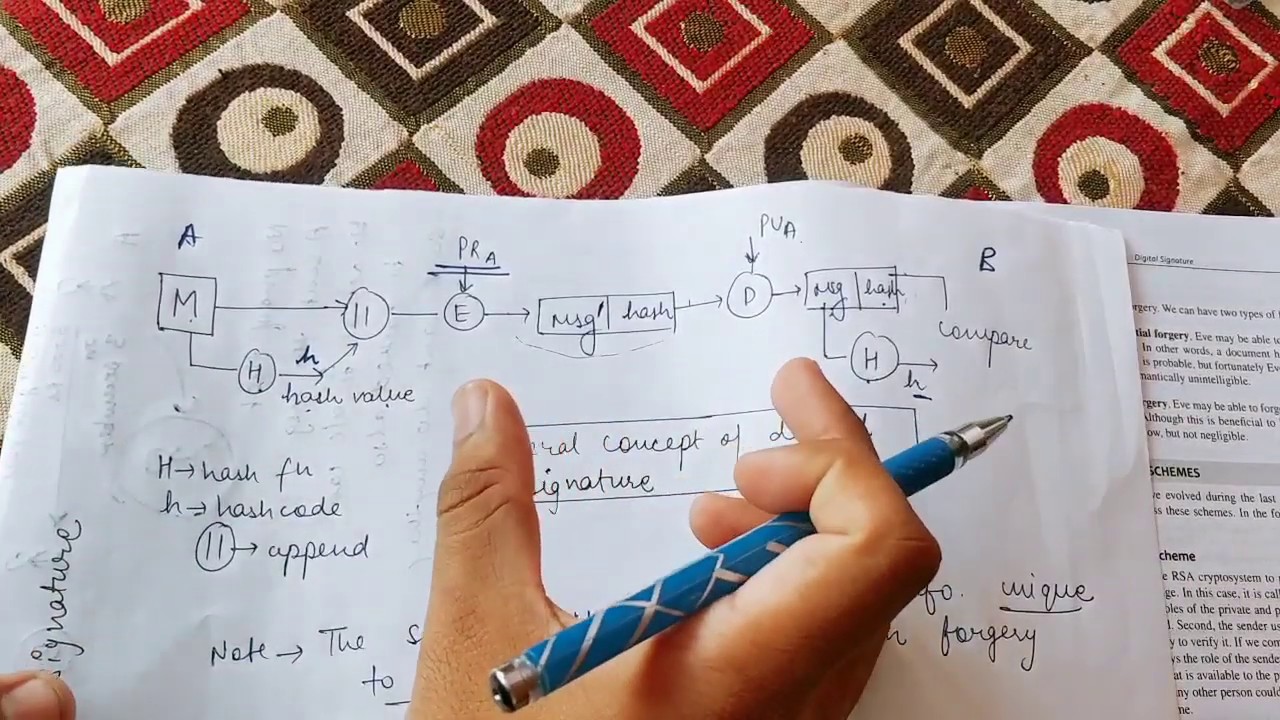 A
PRA
PUA
B
M
||
E
Msg
hash
D
Msg
hash
compare
H
h
hash value
H
h
concept of
ignature
H→hash fn
h→hashcode
||→append
ignature
unique
Note→ The
forgery
to
Digital Signature
rgery. We can have two types of
tial forgery. Eve may be able to
In other words, a document h
is probable, but fortunately Ev
mantically unintelligible.
rgery. Eve may be able to forg
Although this is beneficial to
ow, but not negligible.
SCHEMES
ve evolved during the last
ss these schemes. In the fo
cheme
e RSA cryptosystem to
ge. In this case, it is call
ples of the private and p
. Second, the sender us
y to verify it. If we com
ys the role of the sende
at is available to the p
ny other person could
me.